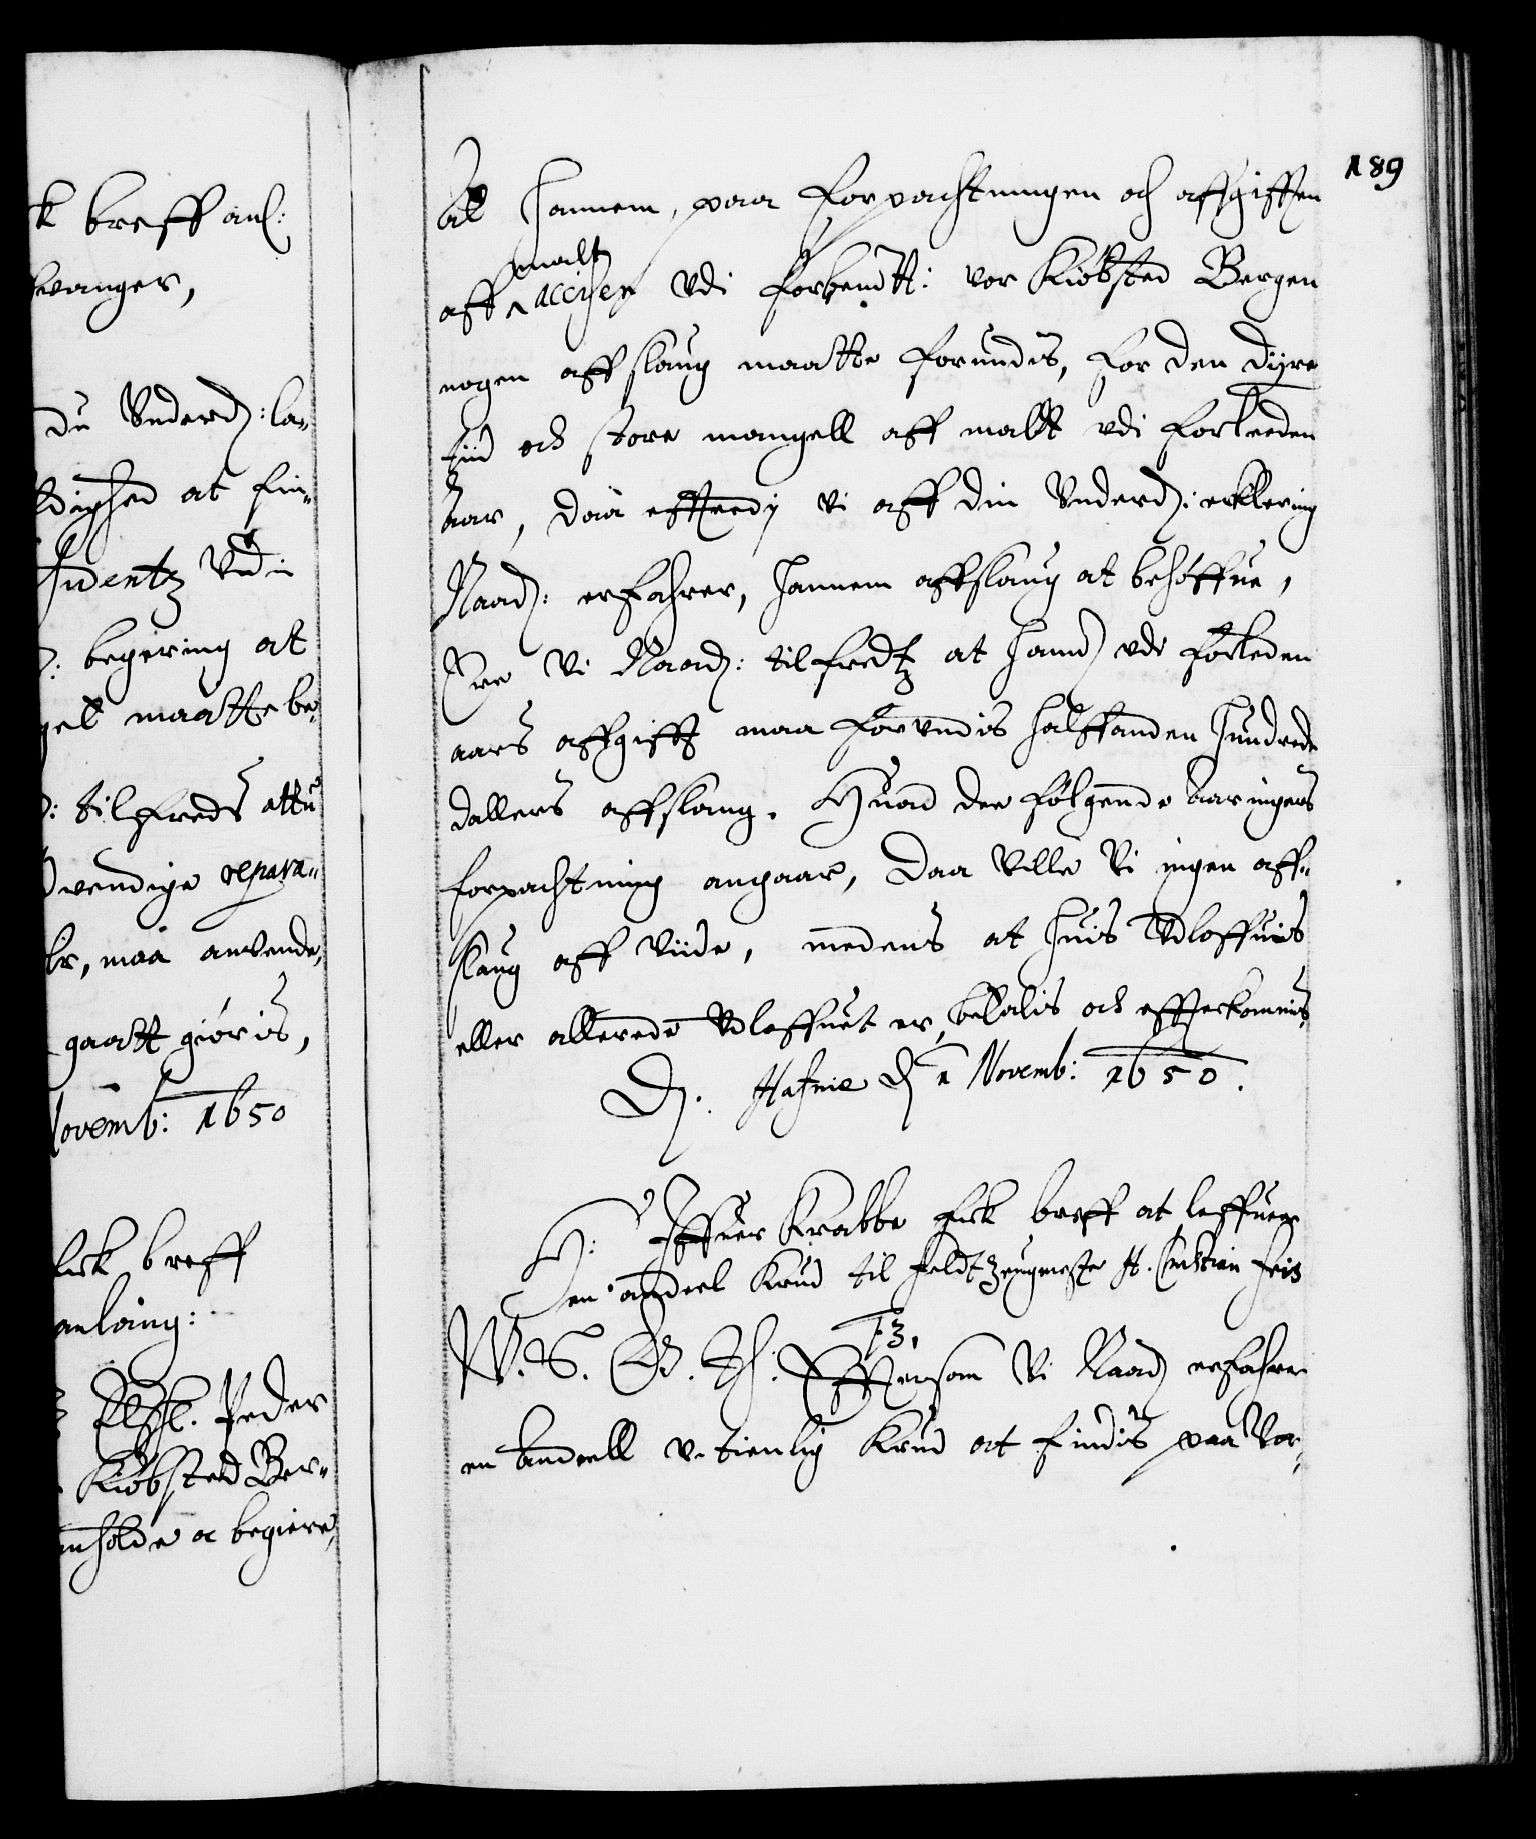 k breff anl:
vanger,
du Underd: la„
dighed at fin„
identz Udi
: begiering at
gel maatte be„
: tilfreds attu
vendige repara„
lr, maa anvende,
gaatt giöris,
ovemb: 1650
fick breff
anlaing:
Peder
Kiöbsted Ber„
nholde a begiere,
189
at hannem, paa forpachtningen och affgifften
malt
aff ^ accisen Udi forbemte: vor Kiöbsted Bergen
nogen affslaug maatte forundis, for den dyre
tiid och store mangell aff malt udi forleeden
aar, daa efftterdj vi aff din Underd: erklering
Naad: erfahrer, hannem affslaug at behöffue,
Ere Vi Naad: tilfredtz at hand udi forleden
aars affgifft maa forundis halffanden hundrede
dallers affslaug. Huad de fölgende aaringers
forpachtning angaar, daa ville Vi ingen aff„
slaug aff viide, medens at huis Udloffuis
eller allerede Udloffuet er, betalis och effterkommis,
D. Hafniæ d. 1 Novemb: 1650.
H: Iffuer Krabbe fick breff at leffuere
en andeel Krud til Feldtzeugmester H.
F. 3.
W. S. G. T: Effttersom Vi Naad erfahrer
en andeell utienlig Krud at findis paa Vor„